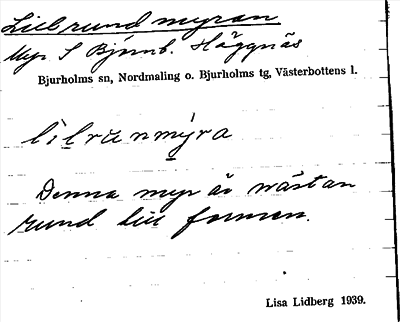 Lill rund myran
Myr S Bjurnb. Häggnäs
Bjurholms sn, Nordmaling o. Bjurholms tg, Västerbottens l.
lilrunmyra
Denna myr är nästan
rund till formen.
Lisa Lidberg 1939.